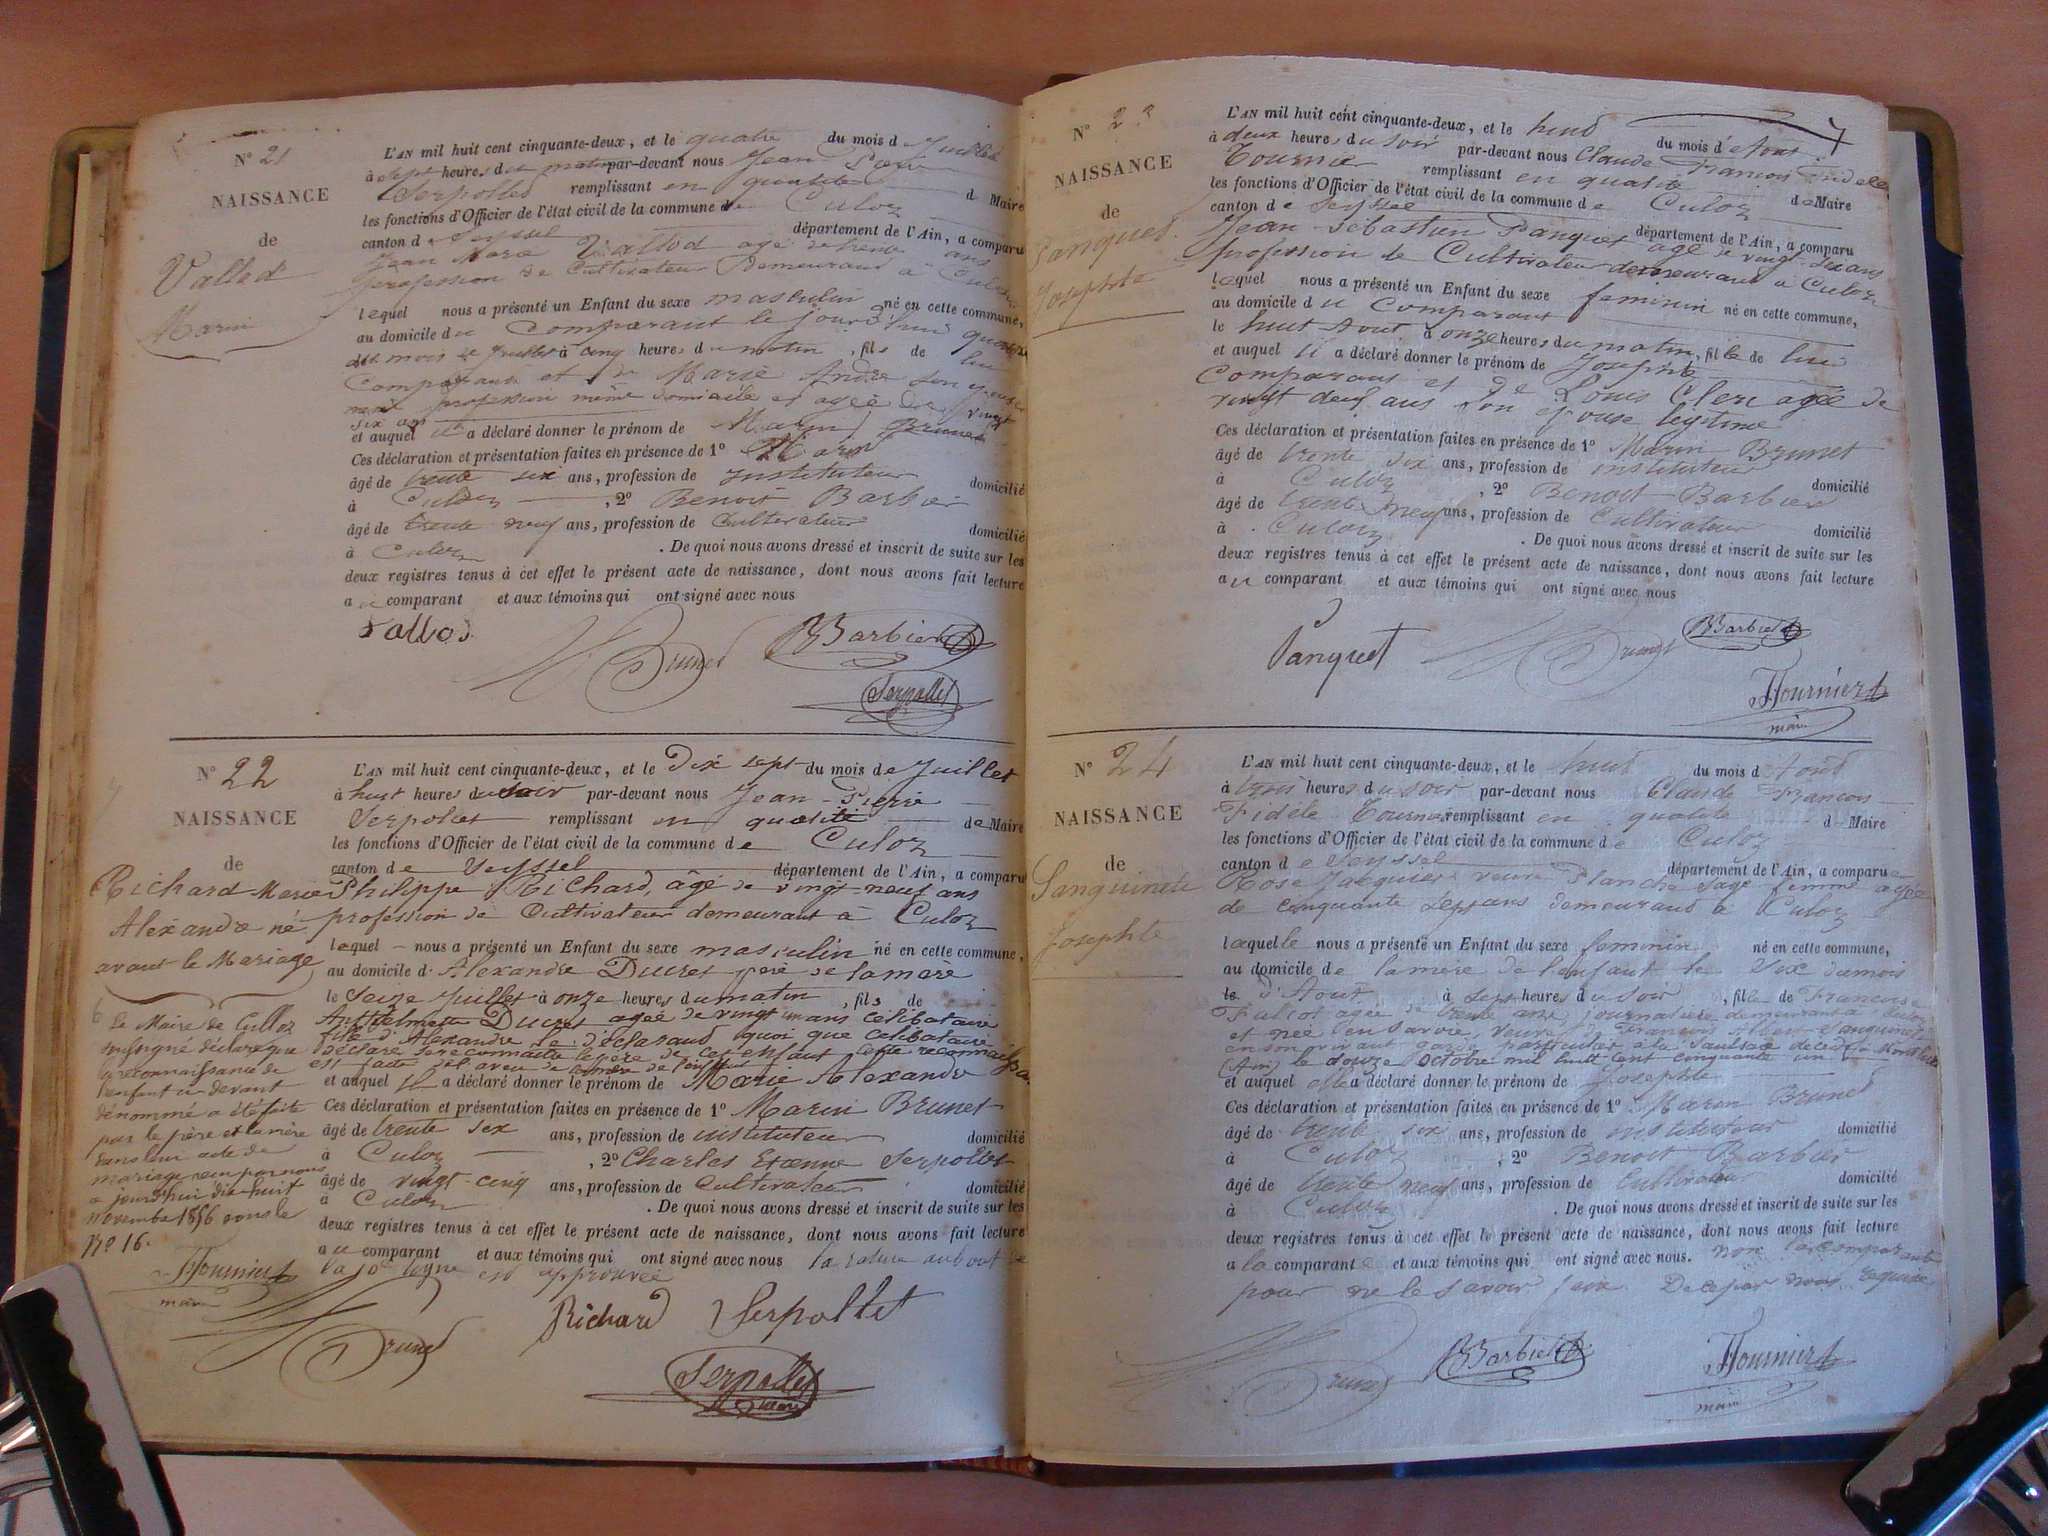 N° 21
NAISSANCE
de
Vallod
Marin
L'AN mil huit cent cinquante-deux, et le quatre du mois d Juillet
à sept heures du matin par-devant nous Jean
Serpollet remplissant en qualité d Maire
les fonctions d'Officier de l'état civil de la commune de Culoz
canton d Seyssel département de l'Ain, a comparu
Jean Marie Vallod agé de trente ans
profession de Cultivateur demeurant à Culoz
lequel nous a présenté un Enfant du sexe masculin né en cette commune,
au domicile du Comparant le jourd'hui quatre
du mois de Juillet à cinq heures du matin, fils de lui
Comparant et de Marie Andre son épouse
profession même domicile et agée de vingt
six ans
et auquel il a déclaré donner le prénom de Marin
Ces déclaration et présentation faites en présence de 1° Marin Brunet
âgé de trente six ans, profession de instituteur domicilié
à Culoz, 2° Benoit Barbier
âgé de trente neuf ans, profession de Cultivateur domicilié
à Culoz. De quoi nous avons dressé et inscrit de suite sur les
deux registres tenus à cet effet le présent acte de naissance, dont nous avons fait lecture
au comparant et aux témoins qui ont signé avec nous
Vallod
Brunet
Barbier
Serpollet
N° 22
NAISSANCE
de
Richard Marie
Alexandre né
avant le Mariage
Le Maire de Culoz
soussigné déclare que
la reconnaissance de
l'enfant ci devant
dénommé a été faite
par le père et la mère
dans leur acte de
mariage reçu par nous
aujourd'hui dix huit
novembre 1856 sous le
N° 16.
Fournier
maire
L'AN mil huit cent cinquante-deux, et le Dix sept du mois de Juillet
à huit heures du soir par-devant nous Jean-Pierre
Serpollet remplissant en qualité de Maire
les fonctions d'Officier de l'état civil de la commune de Culoz
canton de Seyssel département de l'Ain, a comparu
Philippe Richard, âgé de vingt-neuf ans
profession de Cultivateur demeurant à Culoz
lequel - nous a présenté un Enfant du sexe masculin né en cette commune,
au domicile d. Alexandre Ducret père de la mère
le Seize Juillet à onze heures du matin, fils de
Anthelmette Ducret agée de vingt un ans célibataire
fille d'Alexandre le déclarant quoi que célibataire
déclare se reconnaitre le père de cet enfant cette reconnaissa.
est faite de l'aveu de la mère de l'enfant
et auquel il a déclaré donner le prénom de Marie Alexandre
Ces déclaration et présentation faites en présence de 1° Marin Brunet
âgé de trente six ans, profession de instituteur domicilié
à Culoz, 2° Charles Etienne Serpollet
âgé de vingt-cinq ans, profession de Cultivateur domicilié
à Culoz. De quoi nous avons dressé et inscrit de suite sur les
deux registres tenus à cet effet le présent acte de naissance, dont nous avons fait lecture
au comparant et aux témoins qui ont signé avec nous la rature au bout de
la 10e ligne est approuvée
Brunet
Richard
Serpollet
Serpollet
Maire
N° 23
NAISSANCE
de
Panquet
Josephte
L'AN mil huit cent cinquante-deux, et le huit du mois d'Aout
à deux heures du soir par-devant nous Claude François Fidele
Fournier remplissant en qualité de Maire
les fonctions d'Officier de l'état civil de la commune de Culoz
canton de Seyssel département de l'Ain, a comparu
Jean Sébastien Panquet agé de vingt six ans
profession de Cultivateur demeurant à Culoz
lequel nous a présenté un Enfant du sexe feminin né en cette commune,
au domicile du Comparant
le huit Aout à onze heures du matin, fille de lui
et auquel il a déclaré donner le prénom de Josephte
Comparant et de Louis Clerc agée de
vingt deux ans son épouse légitime
Ces déclaration et présentation faites en présence de 1° Marin Brunet
âgé de trente six ans, profession de instituteur domicilié
à Culoz, 2° Benoit Barbier
âgé de trente neuf ans, profession de Cultivateur domicilié
à Culoz. De quoi nous avons dressé et inscrit de suite sur les
deux registres tenus à cet effet le présent acte de naissance, dont nous avons fait lecture
au comparant et aux témoins qui ont signé avec nous
Panquet
Brunet
Barbier
Fournier
maire
N° 24
NAISSANCE
de
Sanguinete
Josephte
L'AN mil huit cent cinquante-deux, et le huit du mois d Aout
à trois heures du soir par-devant nous Claude François
Fidèle Fournier remplissant en qualité de Maire
les fonctions d'Officier de l'état civil de la commune de Culoz
canton de Seyssel département de l'Ain, a comparu
Rose Jacquier veuve Planche Sage femme agée
de cinquante sept ans demeurant à Culoz
laquelle nous a présenté un Enfant du sexe feminin né en cette commune,
au domicile de la mère de l'enfant le Six du mois
d'Aout à sept heures du soir, fille de Francoise
Falcot agée de trente ans, journalière demeurant à Culoz
et née en Savoie, veuve de François Sanguinet
en son vivant garde particulier à la décédé à
(Ain) le douze Octobre mil huit cent cinquante un
et auquel elle a déclaré donner le prénom de Josephte
Ces déclaration et présentation faites en présence de 1° Marin Brunet
âgé de trente six ans, profession de instituteur domicilié
à Culoz, 2° Benoit Barbier
âgé de trente neuf ans, profession de Cultivateur domicilié
à Culoz. De quoi nous avons dressé et inscrit de suite sur les
deux registres tenus à cet effet le présent acte de naissance, dont nous avons fait lecture
a la comparante et aux témoins qui ont signé avec nous. non la comparante
pour ne le savoir faire De ce par nous requise
Brunet
Barbier
Fournier
maire